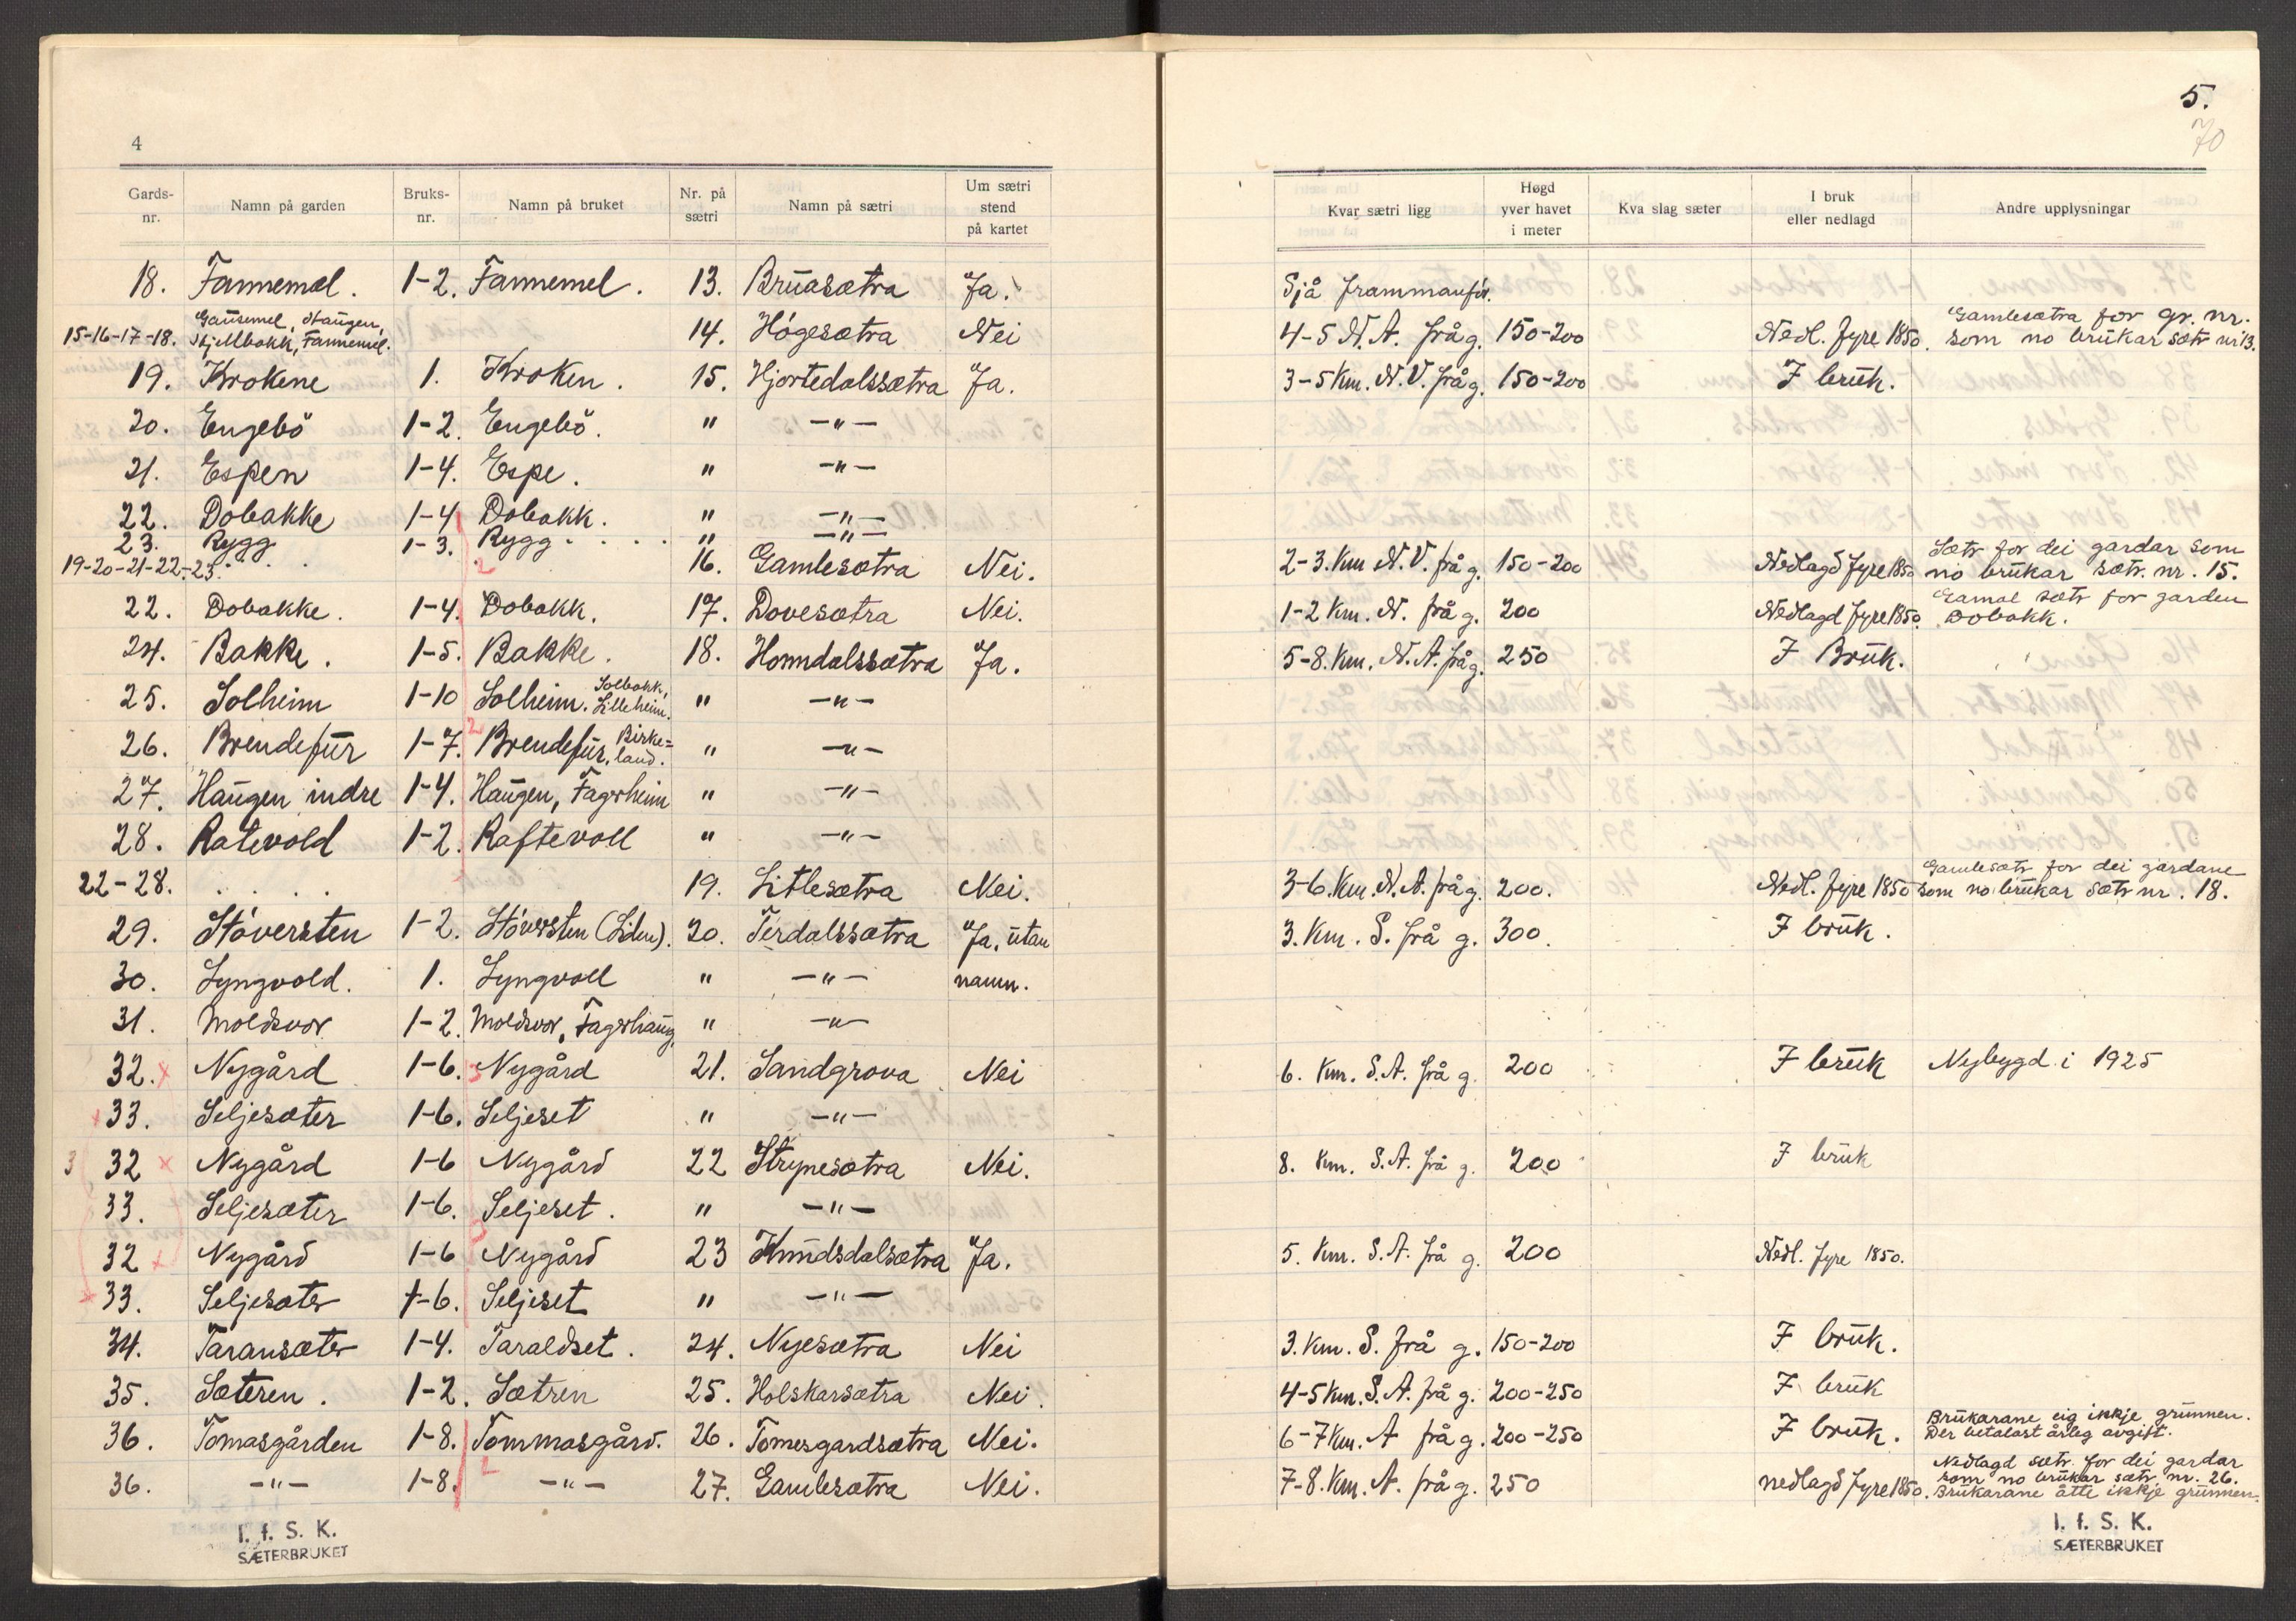 4
Gards-nr. Namn på garden Bruks-nr. Namn på bruket Nr. på sætri Namn på sætri Um sætri stend på kartet
18. Fannemel. 1-2. Fannemel. 13. Bruasætra Ja.
15-16-17-18. Gausemel, Haugen, Skjellbakk, Fannemel. 14. Høgesætra Nei
19. Krokene 1. Kroken. 15. Hjortedalssætra Ja.
20. Engebö 1-2. Engebö. " -"-
21. Espen 1-4. Espe. " -"-
22. Dobakke 1-4 Dobakk. " -"-
23. Rygg 1-3. Rygg.... " -"-
19-20-21-22-23... 16. Gamlesætra Nei.
22. Dobakke. 1-4. Dobakk. 17. Dovesætra Nei.
24. Bakke. 1-5. Bakke. 18. Horndalssætra Ja.
25. Solheim 1-10 Solheim. Solbakk, Lilleheim. " -"-
26. Brendefur 1-7. Brendefur, Birkeland. " -"-
27. Haugen indre 1-4. Haugen, Fagerheim " -"-
28. Ratevold 1-2. Raftevoll " -"-
22-28. .... 19. Litlesætra Nei.
29. Støversten 1-2. Støversten (Liden). 20. Terdalssætra Ja, utan
30. Lyngvold. 1. Lyngvoll " -"- namn.
31. Moldsvor 1-2. Moldsvor, Fagerhaug, " -"-
32. x Nygård 1-6. Nygård 21. Sandgrova Nei
x 33. Seljesæter 1-6. Seljeset " -"-
3 32 x Nygård 1-6 Nygård 22 Strynesætra Nei.
33. Seljesæter 1-6. Seljeset. " -"-
32 x Nygård 1-6 Nygård 23 Knudsdalsætra Ja.
x 33. Seljesæter 1-6. Seljeset " -"-
34. Taransæter 1-4. Taraldset. 24. Nyesætra Nei
35. Sæteren. 1-2. Sætren 25. Holskarsætra Nei.
36. Tomasgården 1-8. Tommasgård. 26. Tomesgardsætra Nei.
36. -"- 1-8. -"- 27. Gamlesætra Nei.
I. f. S. K.
SÆTERBRUKET
5.
70
Kvar sætri ligg Høgd yver havet i meter Kva slag sæter I bruk eller nedlagd Andre upplysningar
Sjå frammanfor.
4-5 N.A. frå g. 150-200 Nedl. fyre 1850. Gamlesætra for gr. nr. som no brukar sætr nr 13.
3-5 Km. N.V. frå g. 150-200 I bruk.
2-3. Km N.V. frå g. 150-200 Nedlagd fyre 1850 Sætr for dei gardar som no brukar sætr. nr. 15.
1-2 Km. N. frå g. 200 Nedlagd fyre 1850. Gamal sætr for garden Dobakk.
5-8. Km. N.A. frå g. 250 I Bruk.
3-6. Km. N.A. frå g. 200. Nedl. fyre 1850 Gamlesætr for dei gardane som no brukar sætr nr. 18.
3. Km. S. frå g. 300. I bruk.
6. Km. S.A. frå g. 200 I bruk Nybygd i 1925
8. Km. S.A. frå g. 200 I bruk
5. Km. S.A. frå g. 200 Nedl. fyre 1850.
3. Km. S. frå g. 150-200 I bruk.
4-5 Km. S.A. frå g. 200-250 I bruk
6-7 Km. A frå g. 200-250 I bruk. Brukarane eig ikkje grunnen. Der betalast årleg avgift.
7-8. Km. A. frå g. 250 nedlagd fyre 1850. Nedlagd sætr. for dei gardar som no brukar sætr. nr. 26. Brukarane åtte ikkje grunnen.
I. f. S. K.
SÆTERBRUKET